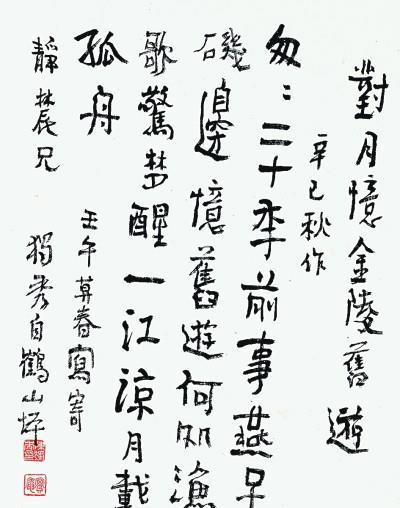 對月憶金陵舊遊
辛巳秋作
匆匆二十年前事燕子
磯邊憶舊遊何処漁
歌驚梦醒一江涼月載
孤舟
壬午莫春寫寄
靜農兄 獨秀自鶴山坪